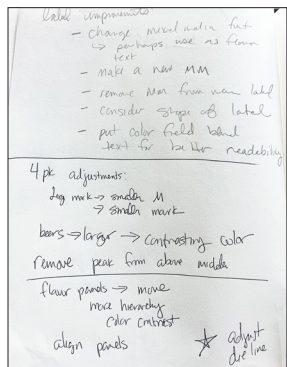 label improvements
- change mixed media font
↳ perhaps use as flavor
text
- make a new MM
- remove MM from main label
- consider shape of label
- put color field behind
text for better readability
4 pk adjustments:
mark → smaller M
→ smaller mark
beers → larger → contrasting color
remove peak from above middle
flavor panels → move
more hierarchy
color contrast
align panels
☆ adjust
die line